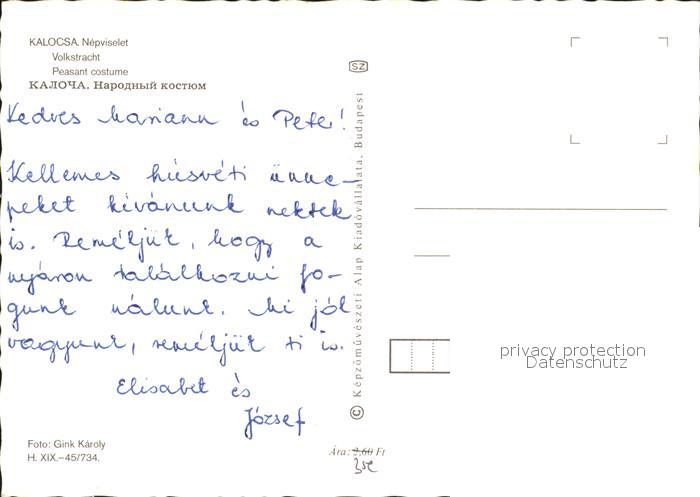 KALOCSA. Népviselet
Volkstracht
Peasant costume
КАЛОЧА. Народный костюм
Kedves Mariann és Peter!
Kellemes húsvéti ünne-
peket kívánunk nektek
is. Reméljük, hogy a
nyáron találkozni fo-
gunk nálunk. Mi jól
vagyunk, reméljük ti is.
Elisabet és
József
Foto: Gink Károly
H. XIX.–45/734.
SZ
© Képzőművészeti Alap Kiadóvállalata, Budapest
Ára: 2,60 Ft
privacy protection
Datenschutz